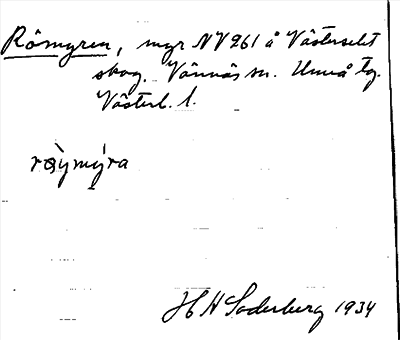 Römyren, myr NV 261 å Västerselet
skog. Vännäs sn. Umeå tg.
Västerb. l.
røymýra
H H Söderberg 1934